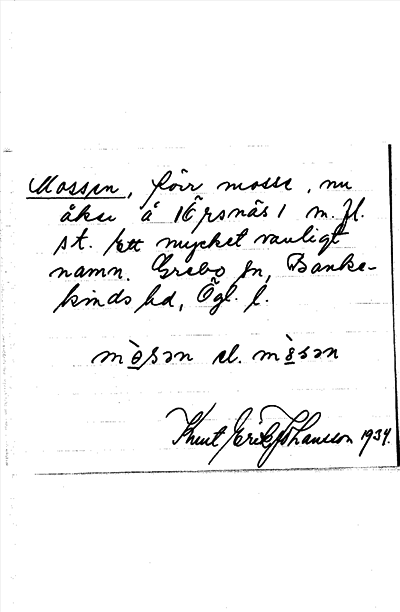 Mossen, förr mosse, nu
åker å /Örsnäs/ m. fl.
st. Ett mycket vanligt
namn. Grebo sn, Banke-
kinds hd, Ögl. l.
mòsən el. mòsən
Knut Erik Johansson 1934.